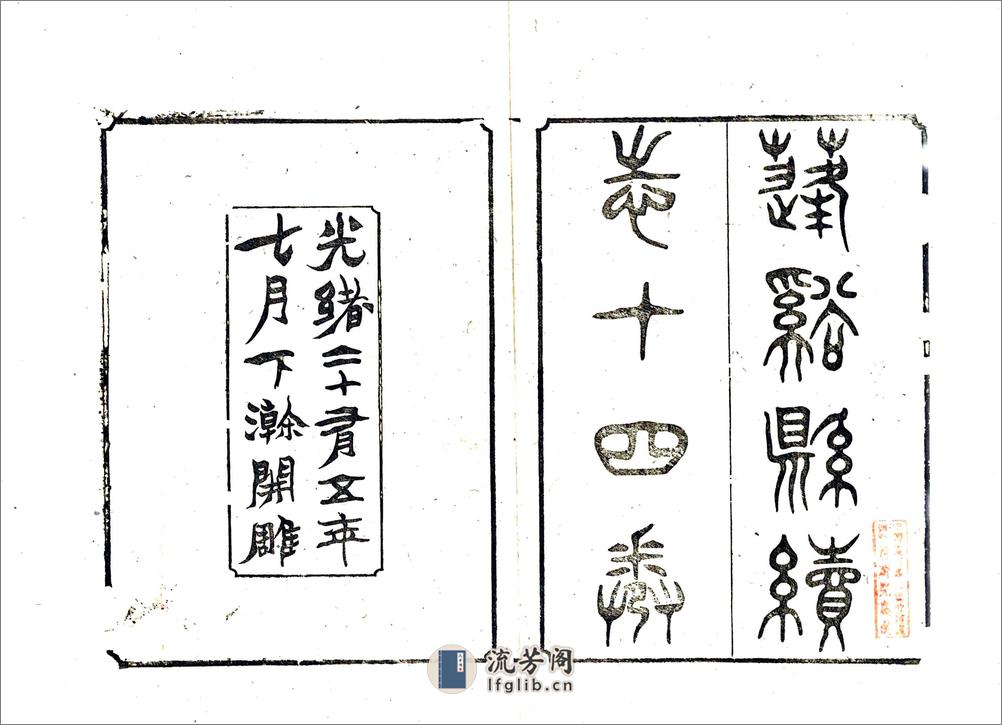 蓬谿縣續
志十四卷
光緒二十有五年
七月下澣開雕
流芳阁
lfglib.cn